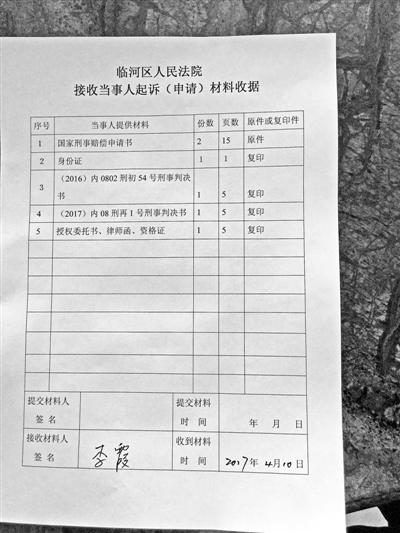 临河区人民法院
接收当事人起诉（申请）材料收据
序号 当事人提供材料 份数 页数 原件或复印件
1 国家刑事赔偿申请书 2 15 原件
2 身份证 1 1 复印
3 （2016）内 0802 刑初 54 号刑事判决
书 1 5 复印
4 （2017）内 08 刑再 1 号刑事判决书 1 5 复印
5 授权委托书、律师函、资格证 1 5 复印
提交材料人 提交材料
签 名 时 间 年 月 日
接收材料人 收到材料
签 名 李霞 时 间 2017年 4月 10日